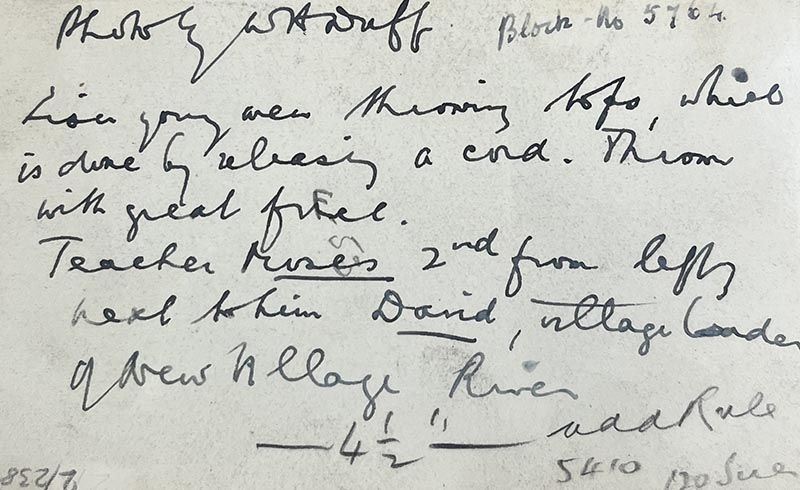 Photo by W H Duff Block-No 5704
Lisu young men throwing tops, which
is done by releasing a cord. Thrown
with great force.
Teacher Moses 2nd from left,
next to him David, village leader
of New Village River
— 4 1/2" — add Rule
5410 120 Scre
2/238